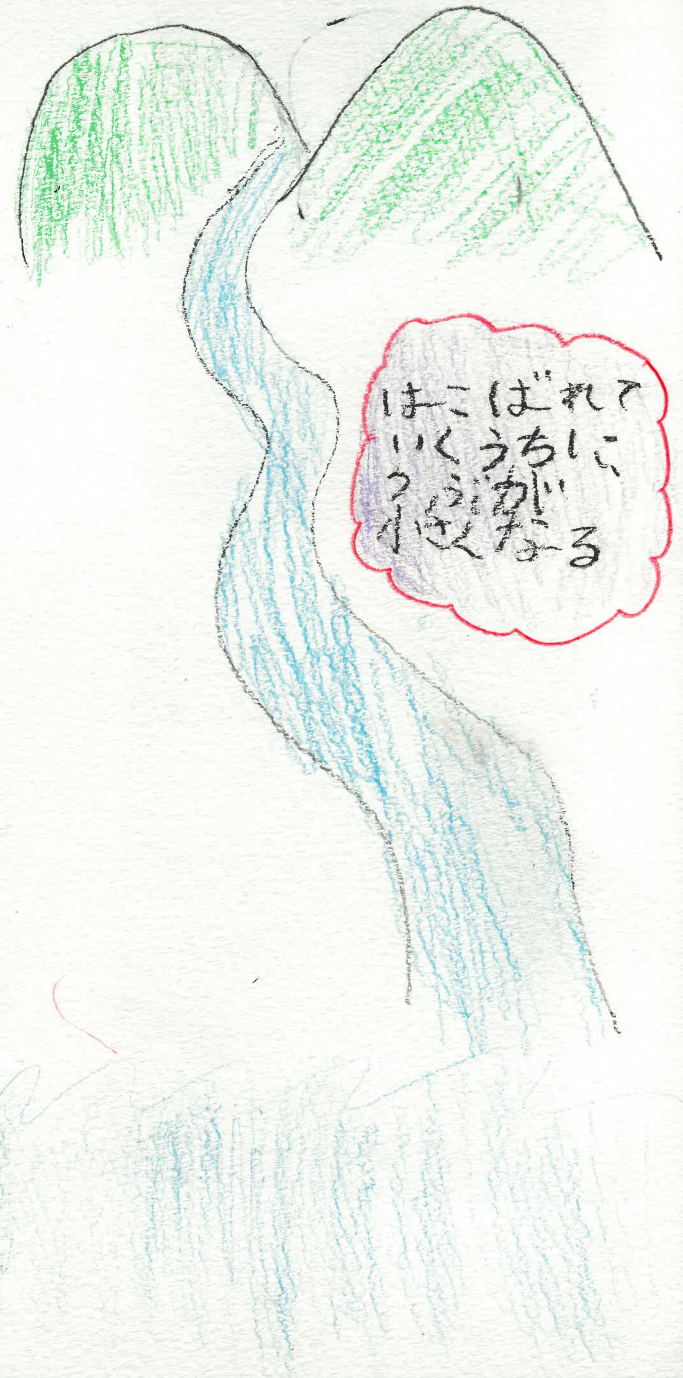 はこばれて
いくうちに、
つぶが
小さくなる